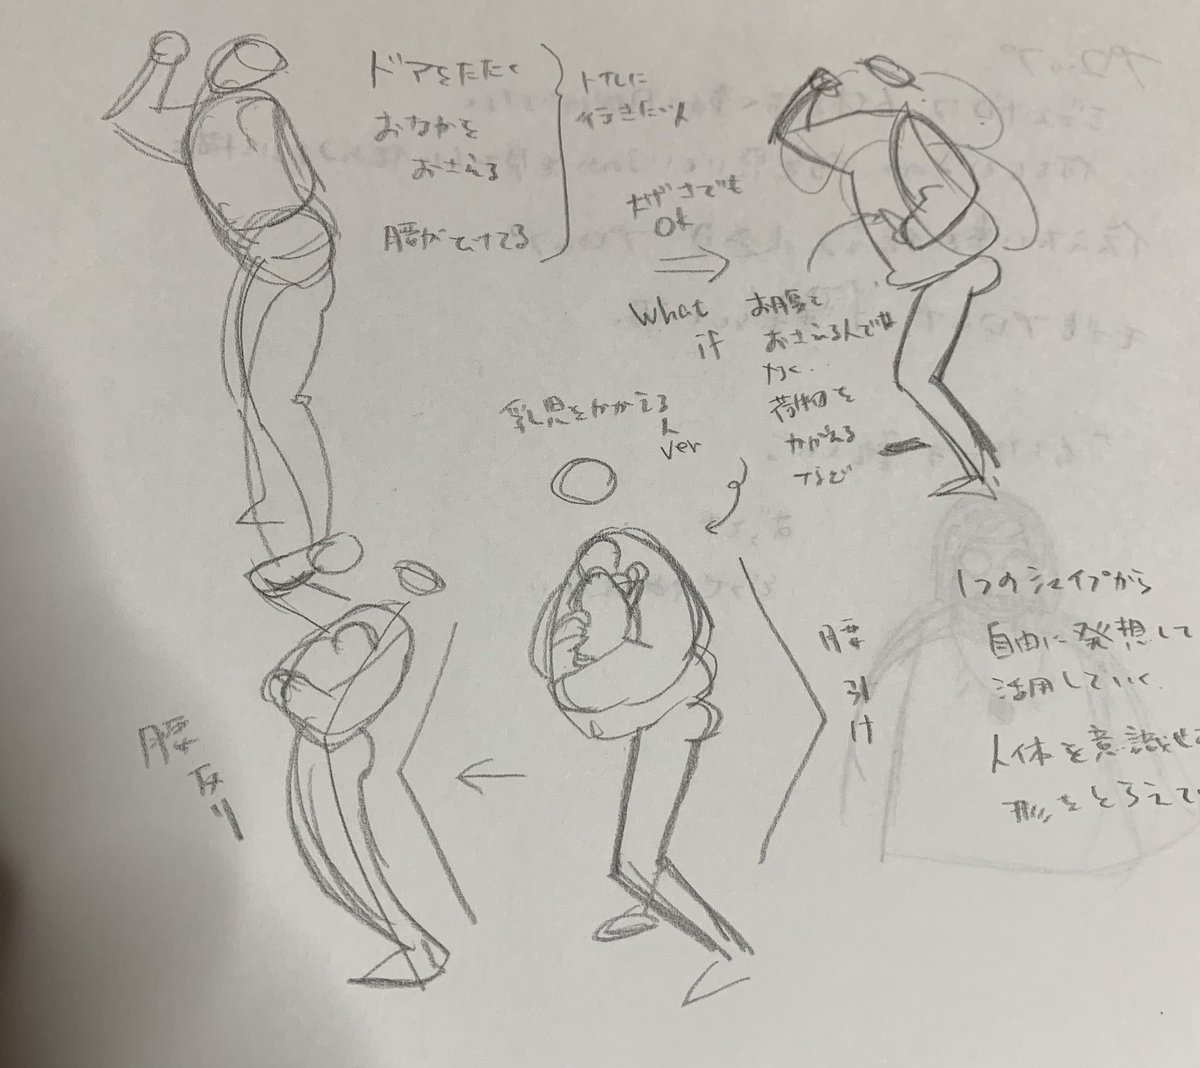 ドアをたたく
おなかを
おさえる
腰がひけてる
トイレに
行きたい人
大げさでも
OK
What
if
お腹を
おさえる人では
なく…
荷物を
かかえる
など
乳児をかかえる
人
ver
腰
引
け
腰
反
り
1つのシェイプから
自由に発想して
活用していく
人体を意識せ
形をとらえて